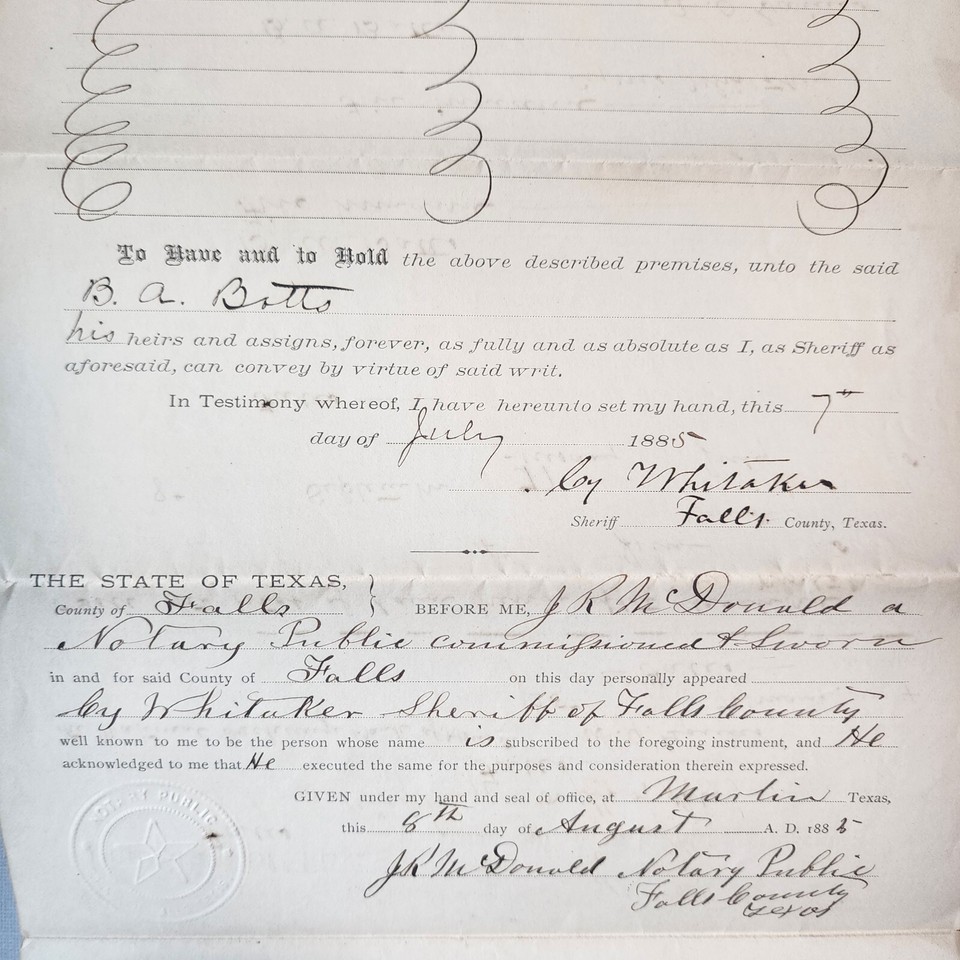 To Have and to Hold the above described premises, unto the said
B. A. Botts
his heirs and assigns, forever, as fully and as absolute as I, as Sheriff as
aforesaid, can convey by virtue of said writ.
In Testimony whereof, I have hereunto set my hand, this 7th
day of July 1885
Cy Whitaker
Sheriff Falls County, Texas.
THE STATE OF TEXAS,
County of Falls } BEFORE ME, J R McDonald a
Notary Public commissioned & Sworn
in and for said County of Falls on this day personally appeared
Cy Whitaker Sheriff of Falls County
well known to me to be the person whose name is subscribed to the foregoing instrument, and He
acknowledged to me that He executed the same for the purposes and consideration therein expressed.
GIVEN under my hand and seal of office, at Marlin Texas,
this 8th day of August A. D. 1885
NOTARY PUBLIC
J R McDonald Notary Public
Falls County
Texas